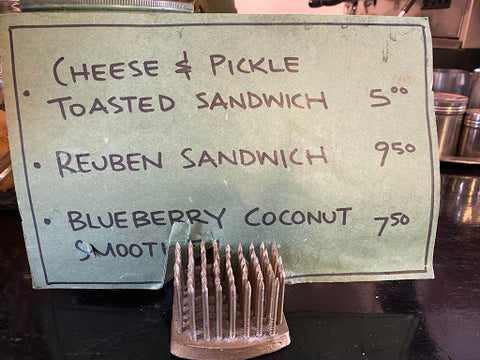 • CHEESE & PICKLE
TOASTED SANDWICH 5⁰⁰
• REUBEN SANDWICH 9⁵⁰
• BLUEBERRY COCONUT 7⁵⁰
SMOOT